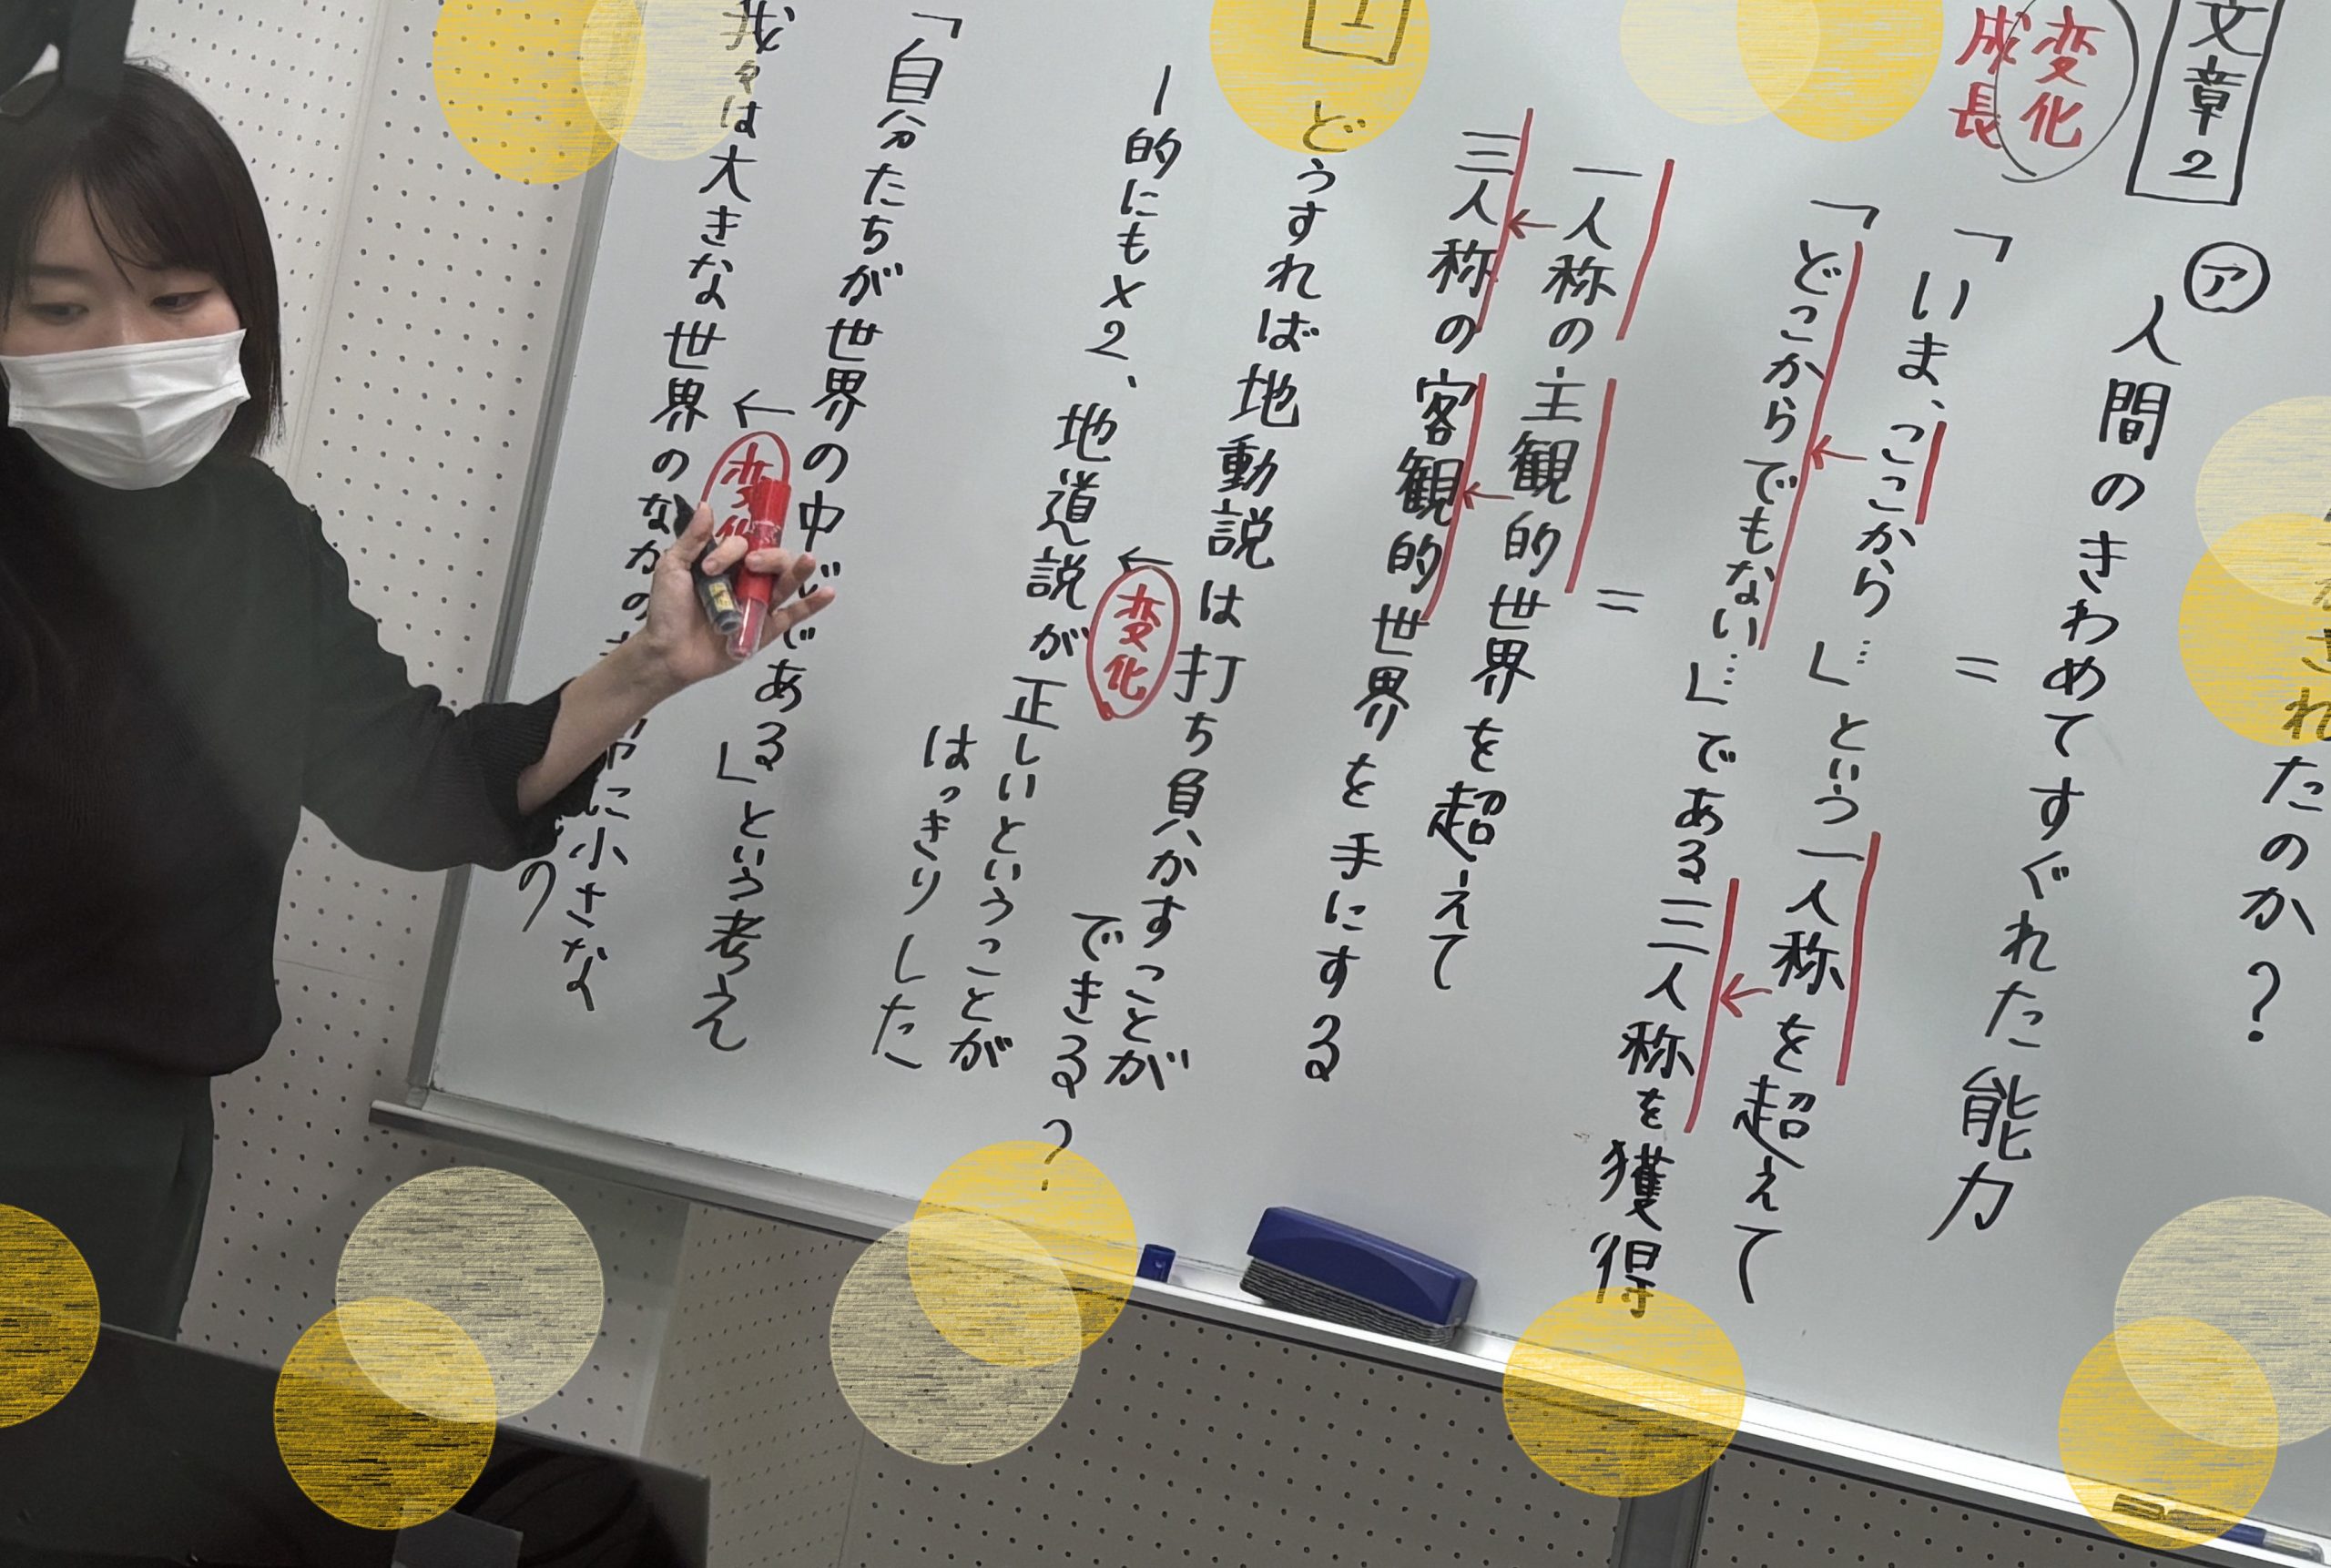 文章2
変化
成長
れたのか？
㋐
人間のきわめてすぐれた能力
＝
「いま、ここから…」という一人称を超えて
「どこからでもない…」である三人称を獲得
＝
一人称の主観的世界を超えて
三人称の客観的世界を手にする
1
どうすれば地動説は打ち負かすことが
できる？
ー的にも×2、地道説が正しいということが
はっきりした
変化
「自分たちが世界の中 である」という考え
変化
我々は大きな世界のなかの に小さな
の